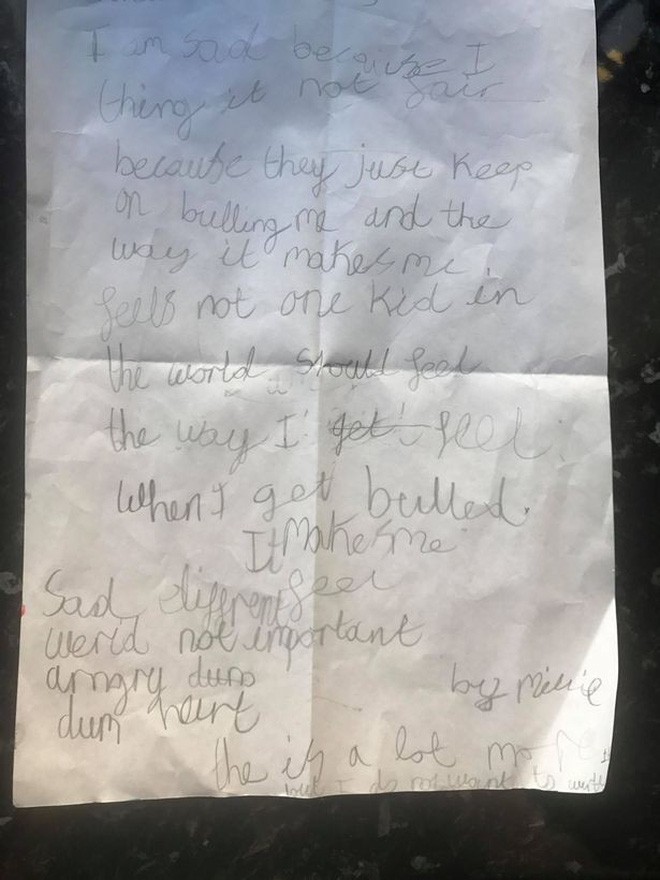 I am sad because I
thing it not fair
because they just keep
on bulling me and the
way it makes me
feels not one kid in
the world should feel
the way I get feel
when I get bulled.
It makes me
Sad different feel
werid not important
arngry dum
dum heart
by Millie
the is a lot more
but I do not want to write